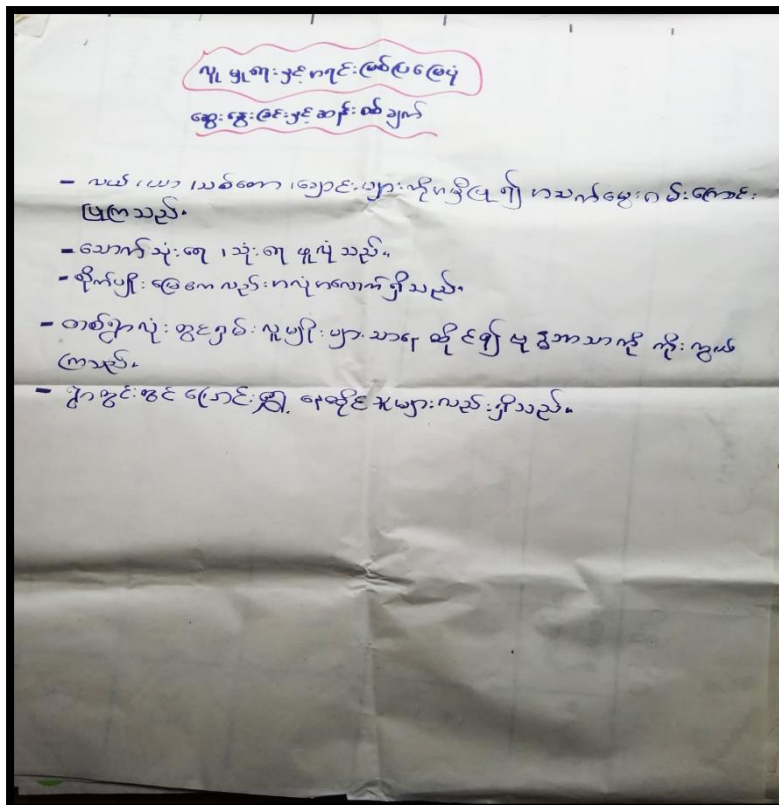 လူမှုရေးနှင့်အရင်းအမြစ်ပြမြေပုံ
ဆွေးနွေးခြင်းနှင့်ဆန်းစစ်ချက်
- လယ်၊ယာ၊သစ်တော၊ချောင်းများကိုအမှီပြု၍ အသက်မွေးဝမ်းကျောင်း
ပြုကြသည်။
- သောက်သုံးရေ၊သုံးရေ ဖူလုံသည်။
- စိုက်ပျိုးမြေကလည်းအလုံအလောက်ရှိသည်။
- တစ်ရွာလုံးတွင်ရှမ်းလူမျိုးများသာနေထိုင်၍ ဗုဒ္ဓဘာသာကို ကိုးကွယ်
ကြသည်။
- ရွာတွင်းတွင် ပြောင်းရွှေ့နေထိုင်သူများလည်းရှိသည်။